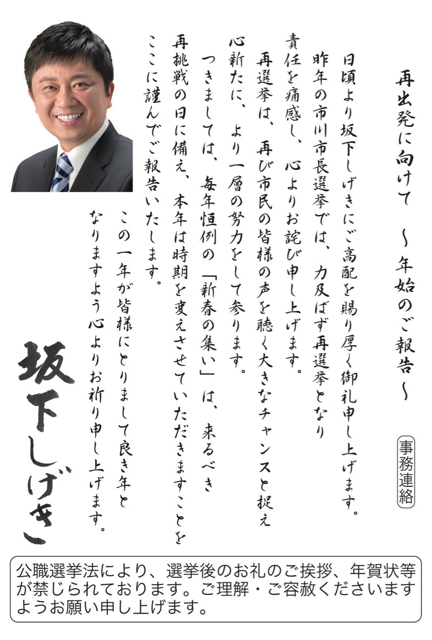 再出発に向けて　～年始のご報告～
事務連絡
日頃より坂下しげきにご高配を賜り厚く御礼申し上げます。
昨年の市川市長選挙では、力及ばず再選挙となり
責任を痛感し、心よりお詫び申し上げます。
再選挙は、再び市民の皆様の声を聴く大きなチャンスと捉え
心新たに、より一層の努力をして参ります。
つきましては、毎年恒例の「新春の集い」は、来るべき
再挑戦の日に備え、本年は時期を変えさせていただきますことを
ここに謹んでご報告いたします。
この一年が皆様にとりまして良き年と
なりますよう心よりお祈り申し上げます。
坂下しげき
公職選挙法により、選挙後のお礼のご挨拶、年賀状等
が禁じられております。ご理解・ご容赦くださいます
ようお願い申し上げます。